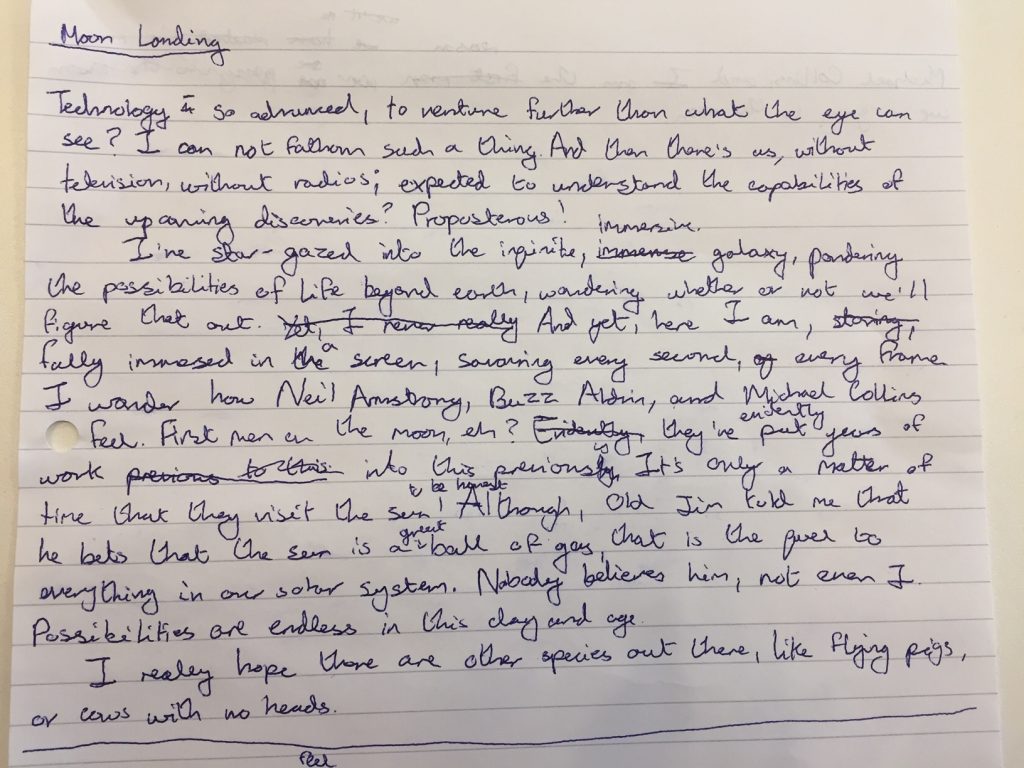 Moon Landing
Technology is so advanced, to venture further than what the eye can
see? I can not fathom such a thing. And then there's us, without
television, without radios; expected to understand the capabilities of
the upcoming discoveries? Proposterous!
immersive.
I've star-gazed into the infinite, immense galaxy, pondering
the possibilities of life beyond earth, wondering whether or not we'll
figure that out. Yet, I never really And yet, here I am, staring,
fully immersed in the a screen, savouring every second, of every frame
I wonder how Neil Armstrong, Buzz Aldrin, and Michael Collins
evidently
feel. First men on the moon, eh? Evidently, they've put years of
work previous to this into this previously. It's only a matter of
to be honest
time that they visit the sun! Although, Old Jim told me that
great
he bets that the sun is a ball of gas, that is the fuel to
everything in our solar system. Nobody believes him, not even I.
Possibilities are endless in this day and age.
I realey hope there are other species out there, like flying pigs,
or cows with no heads.
feel